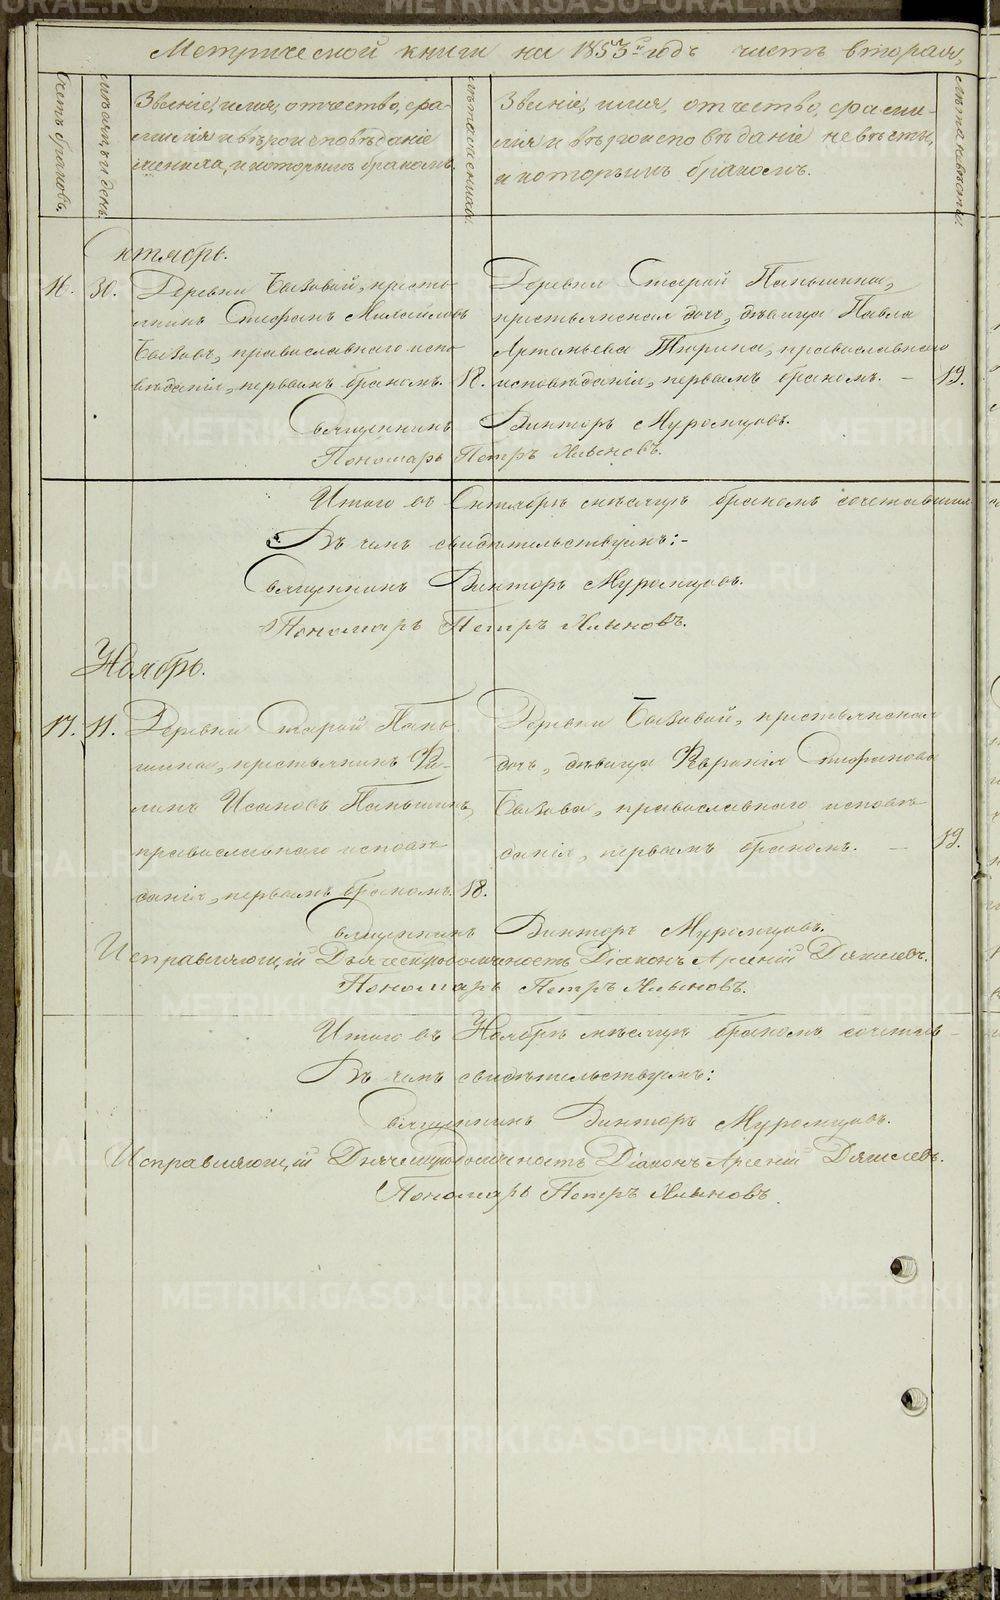 Метрической книги на 1853й годъ часть вторая,
Счетъ браковъ.
мѣсяцъ и день.
Званіе, имя, отчество, фа-
милія и вѣроисповѣданіе
жениха, и которымъ бракомъ.
лѣта жениха.
Званіе, имя, отчество, фами-
лія и вѣроисповѣданіе невѣсты,
и которымъ бракомъ.
лѣта невѣсты.
Октябрь.
16. 30. Деревни Бызовой, кресть-
янинъ Стефанъ Михайловъ
Бызовъ, православнаго испо-
вѣданія, первымъ бракомъ. 18.
Деревни Старой Паньшина,
крестьянская дочь, дѣвица Павла
Артемьева Тюрина, православнаго
исповѣданія, первымъ бракомъ. — 19.
Священникъ Викторъ Муромцовъ.
Пономарь Петръ Хлыновъ.
Итого въ Октябрѣ мѣсяцѣ бракомъ сочетавшихся
Въ чемъ свидѣтельствуемъ:-
Священникъ Викторъ Муромцовъ.
Пономарь Петръ Хлыновъ.
Ноябрь.
17. 11. Деревни Старой Пань-
шина, крестьянинъ
Исаковъ Паньшинъ,
православнаго исповѣ-
данія, первымъ бракомъ. 18.
Деревни Бызовой, крестьянская
дочь, дѣвица Стефанова
Бызова, православнаго исповѣ-
данія, первымъ бракомъ. — 19.
Священникъ Викторъ Муромцовъ.
Исправляющій Дьяческую должность Діаконъ Арсеній
Пономарь Петръ Хлыновъ.
Итого въ Ноябрѣ мѣсяцѣ бракомъ сочетав-
Въ чемъ свидѣтельствуемъ:
Священникъ Викторъ Муромцовъ.
Исправляющій Дьяческую должность Діаконъ Арсеній
Пономарь Петръ Хлыновъ.
METRIKI.GASO-URAL.RU